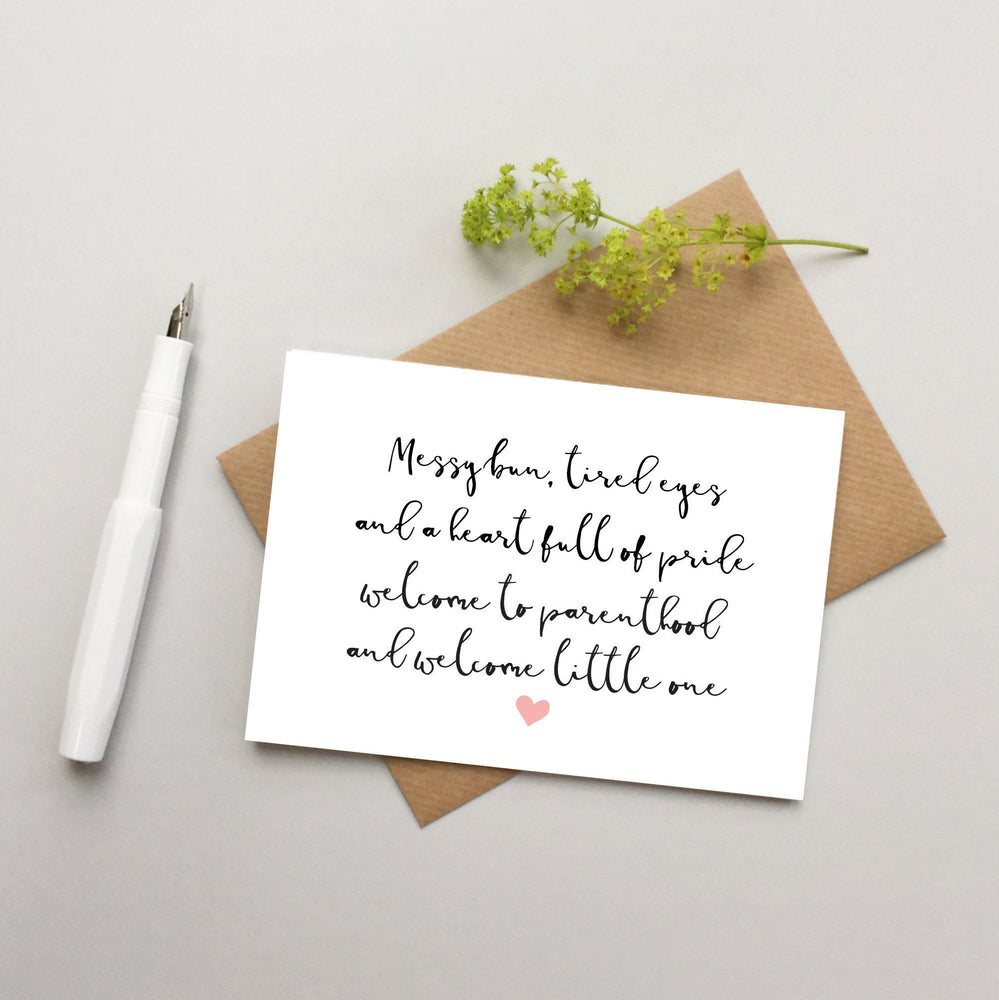 Messy bun, tired eyes
and a heart full of pride
welcome to parenthood
and welcome little one